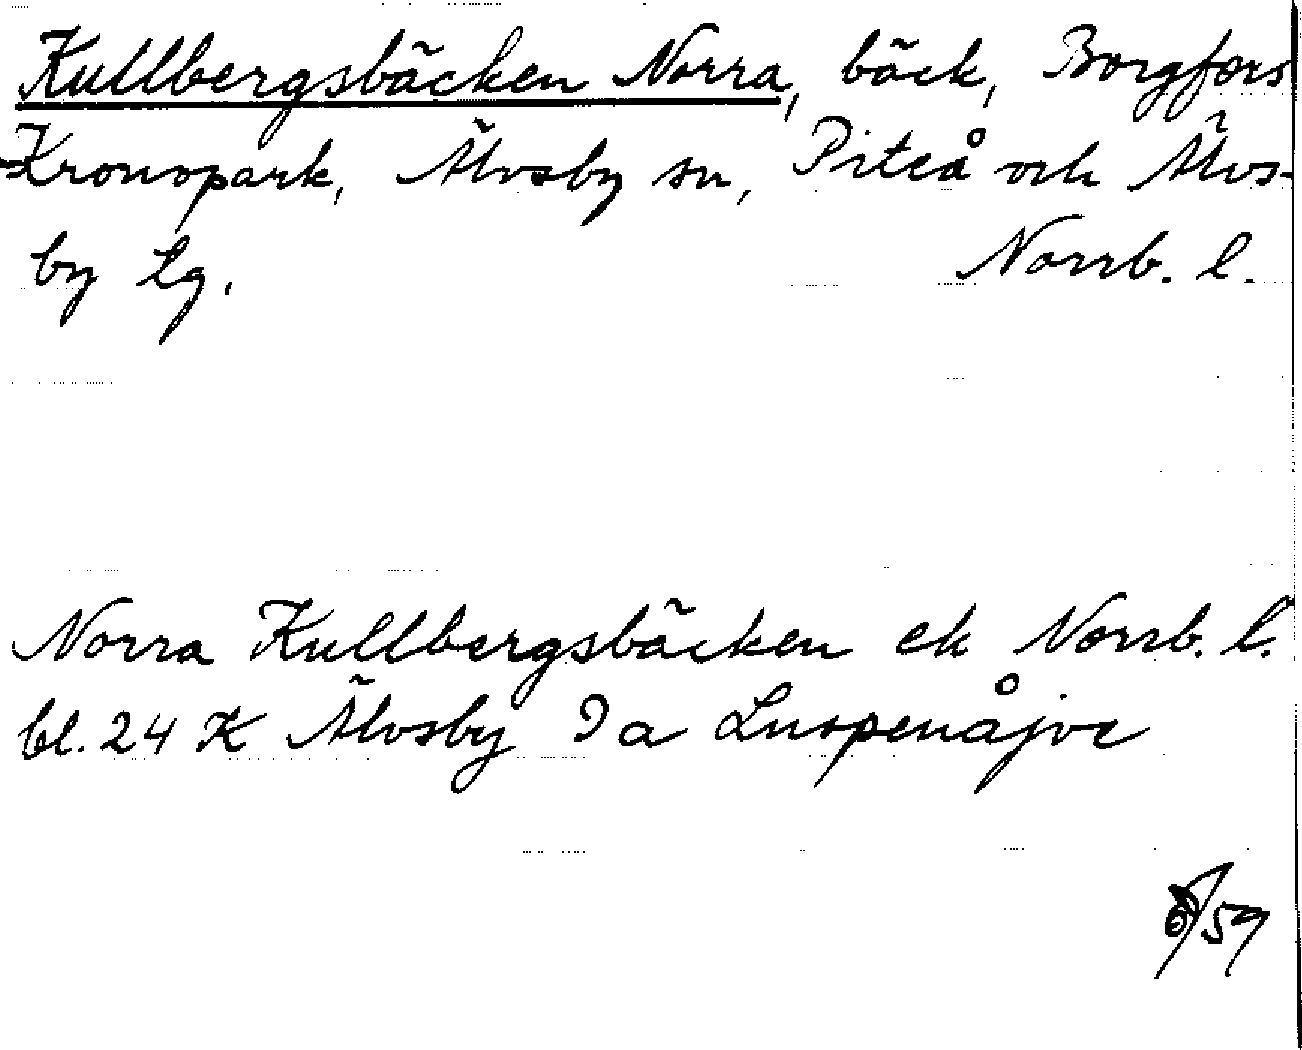 Kullbergsbäcken Norra, bäck, Borgfors
Kronopark, Älvsby sn, Piteå och Älvs-
by tg. Norrb. l.
Norra Kullbergsbäcken ek Norrb. l.
bl. 24 K Älvsby 9a Luspenåjve
/57